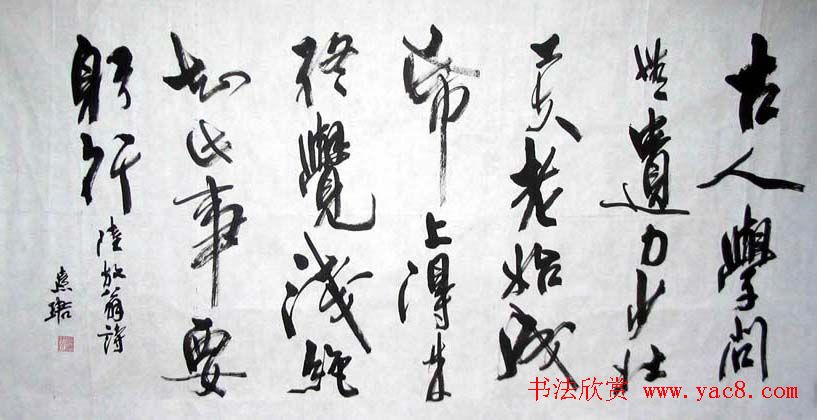 古人學问
無遺力少壮
工夫老始成
帋上得来
终覺淺絶
知此事要
躬行 陸放翁詩
书法欣赏 www.yac8.com